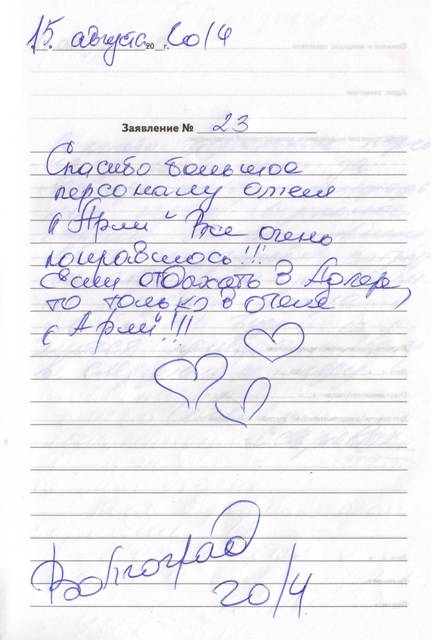 15. августа 20 г. 2014
Заявление № 23
Спасибо большое
персоналу отеля
"Арли" Все очень
понравилось!!!
Если отдыхать в Адлер,
то только в отеле
"Арли"!!!
Волгоград
2014